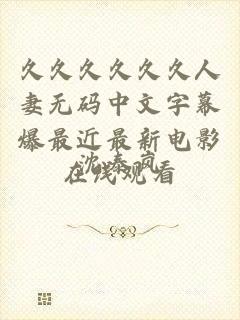 久久久久久久人
妻无码中文字幕
爆最近最新电影
在线观看
沈秦岚